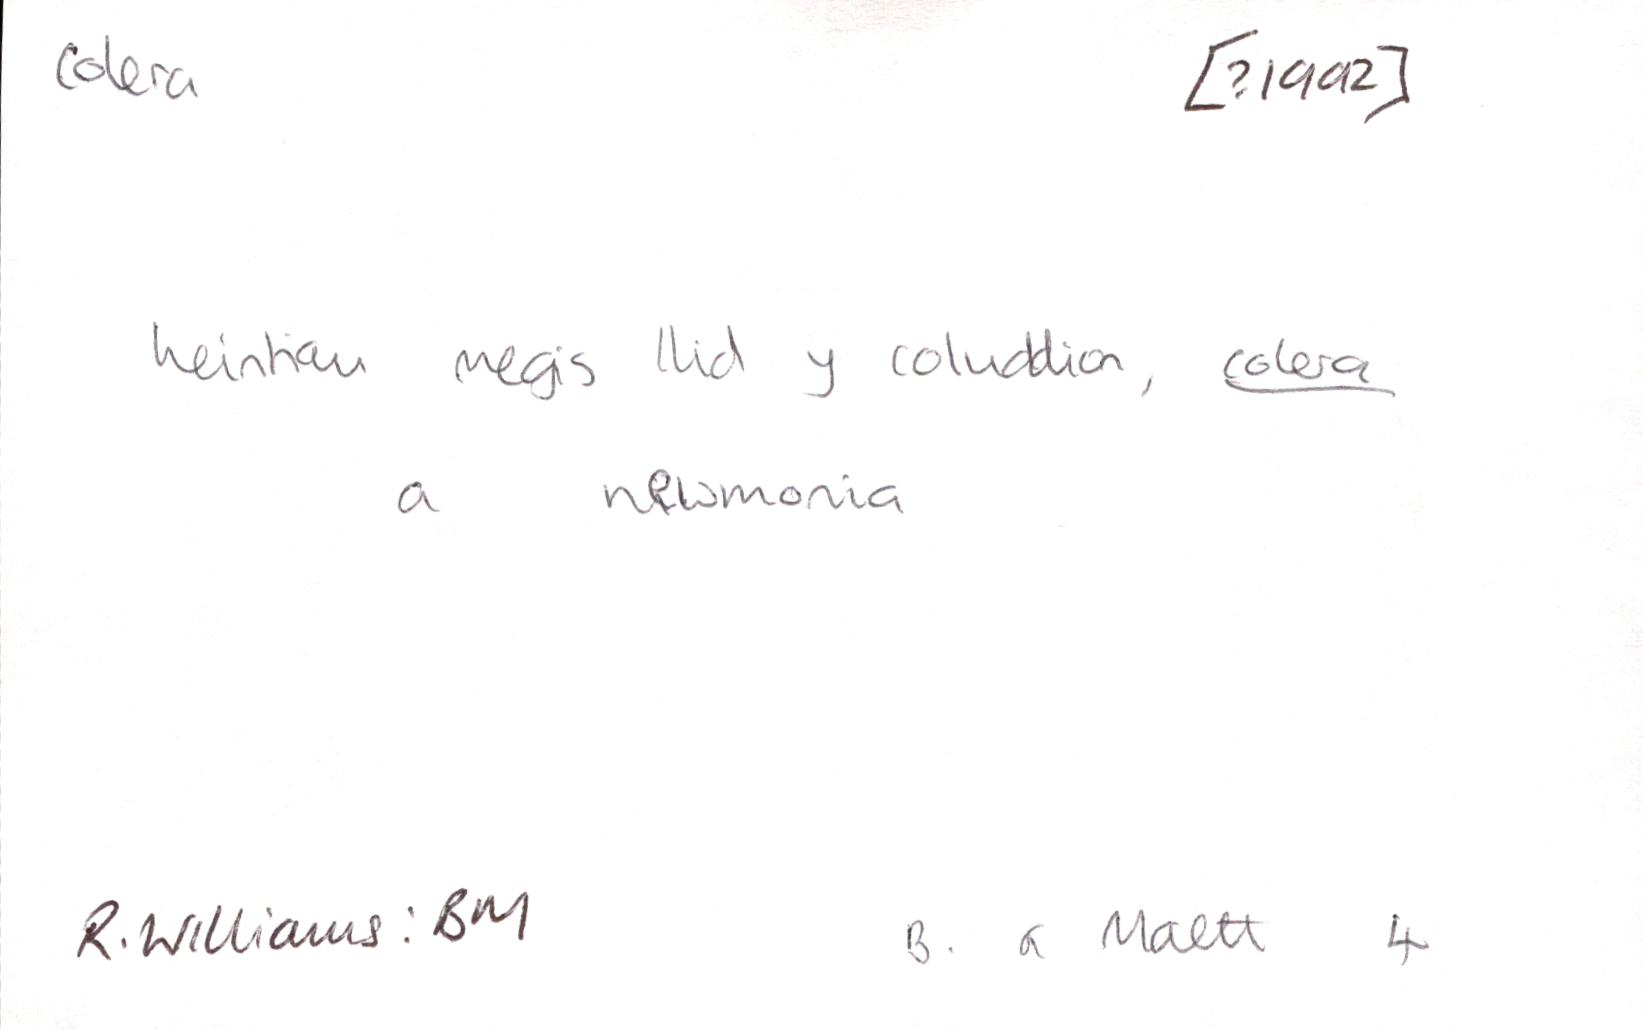 colera [?1992]
heintiau megis llid y coluddion, colera
a newmonia
R. Williams: BM B. a Maeth 4